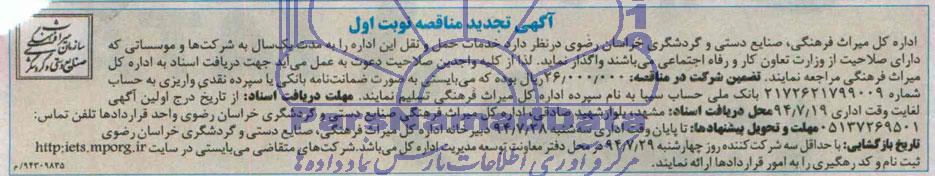 آگهی تجدید مناقصه نوبت اول
اداره کل میراث فرهنگی، صنایع دستی و گردشگری خراسان رضوی درنظر دارد خدمات حمل و نقل این اداره را به مدت یک‌سال به شرکت‌ها و موسساتی که
دارای صلاحیت از وزارت تعاون کار و رفاه اجتماعی می‌باشند واگذار نماید. لذا از کلیه واجدین صلاحیت دعوت به عمل می‌آید جهت دریافت اسناد به اداره کل
میراث فرهنگی مراجعه نمایند. تضمین شرکت در مناقصه: ۲۶/۰۰۰/۰۰۰ریال بوده که می‌بایستی به صورت ضمانت‌نامه بانکی یا سپرده نقدی واریزی به حساب
شماره ۲۱۷۲۶۲۱۷۹۹۰۰۹ بانک ملی حساب سیبا به نام سپرده اداره کل میراث فرهنگی تسلیم نمایند. مهلت دریافت اسناد: از تاریخ درج اولین آگهی
لغایت وقت اداری ۹۴/۷/۱۹ محل دریافت اسناد: مشهد بلوار شهید صادقی، اداره کل میراث فرهنگی، صنایع دستی و گردشگری خراسان رضوی واحد قراردادها تلفن تماس:
۰۵۱۳۷۲۶۹۵۰۱ مهلت و تحویل پیشنهادها: تا پایان وقت اداری سه‌شنبه ۹۴/۷/۲۸ دبیرخانه اداره کل میراث فرهنگی، صنایع دستی و گردشگری خراسان رضوی
تاریخ بازگشایی: با حداقل سه شرکت‌کننده روز چهارشنبه ۹۴/۷/۲۹ در محل دفتر معاونت توسعه مدیریت اداره کل می‌باشد. شرکت‌های متقاضی می‌بایستی در سایت http:iets.mporg.ir
ثبت نام و کد رهگیری را به امور قراردادها ارائه نمایند.
۹۴۳۰۹۸۳۵/م
سازمان میراث فرهنگی
صنایع دستی و گردشگری
مرکز فرآوری اطلاعات پارس نماد داده‌ها